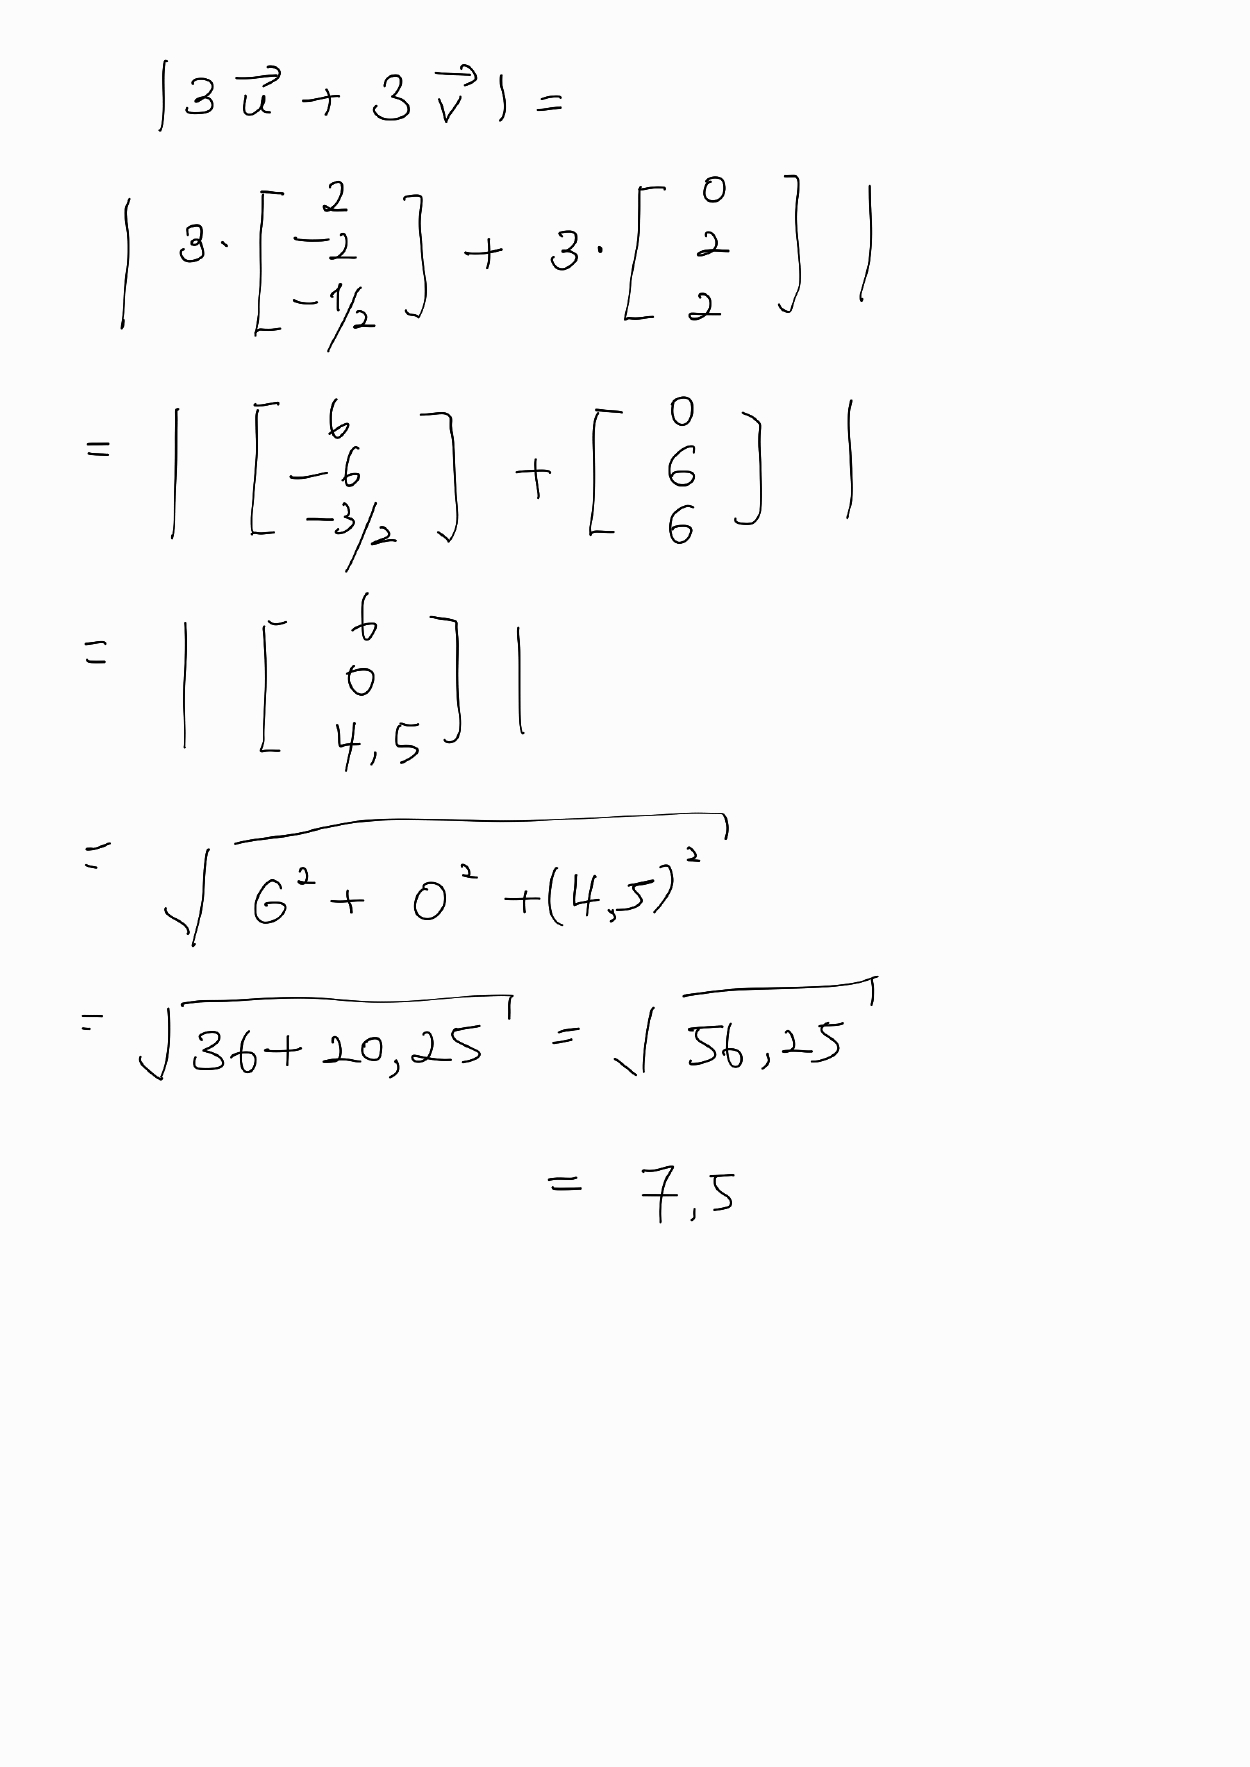 |3 u⃗ + 3 v⃗| =
| 3 · [ 2 -2 -1/2 ] + 3 · [ 0 2 2 ] |
= | [ 6 -6 -3/2 ] + [ 0 6 6 ] |
= | [ 6 0 4,5 ] |
= √(6² + 0² + (4,5)²)
= √(36 + 20,25) = √(56,25)
= 7,5